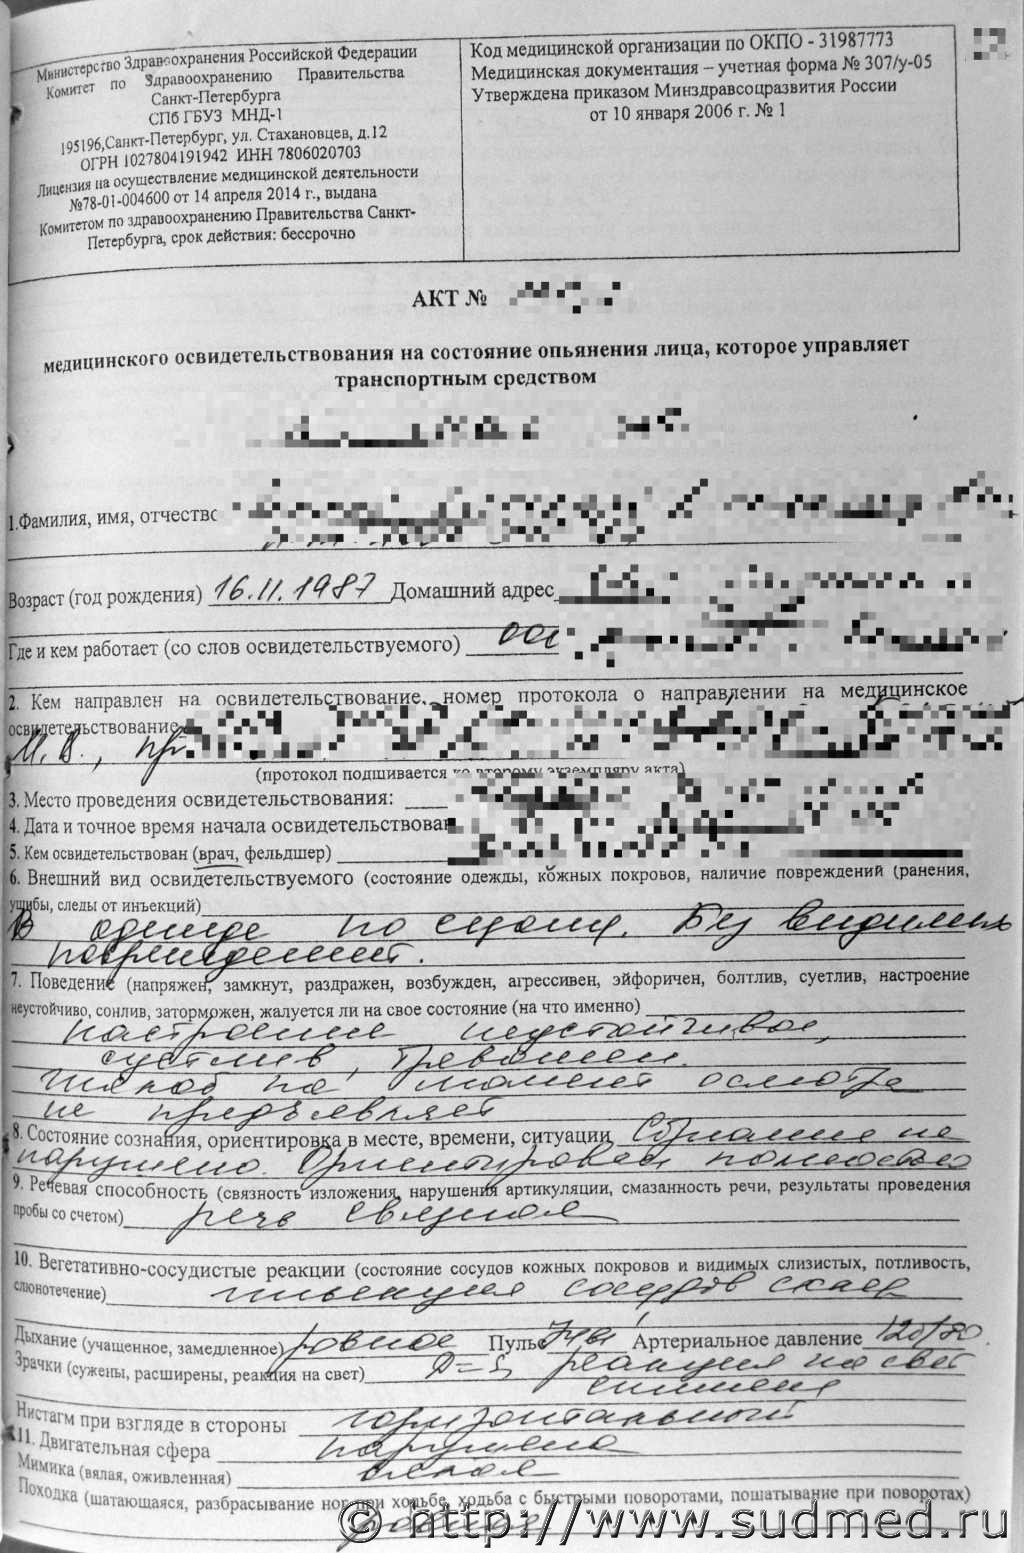 Министерство Здравоохранения Российской Федерации
Комитет по Здравоохранению Правительства
Санкт-Петербурга
СПб ГБУЗ МНД-1
195196,Санкт-Петербург, ул. Стахановцев, д.12
ОГРН 1027804191942 ИНН 7806020703
Лицензия на осуществление медицинской деятельности
№78-01-004600 от 14 апреля 2014 г., выдана
Комитетом по здравоохранению Правительства Санкт-
Петербурга, срок действия: бессрочно
Код медицинской организации по ОКПО - 31987773
Медицинская документация – учетная форма № 307/у-05
Утверждена приказом Минздравсоцразвития России
от 10 января 2006 г. № 1
АКТ №
медицинского освидетельствования на состояние опьянения лица, которое управляет
транспортным средством
1.Фамилия, имя, отчество
Возраст (год рождения) 16.11.1987 Домашний адрес
Где и кем работает (со слов освидетельствуемого) ООО
2. Кем направлен на освидетельствование, номер протокола о направлении на медицинское
освидетельствование
(протокол подшивается ко второму экземпляру акта)
3. Место проведения освидетельствования:
4. Дата и точное время начала освидетельствован
5. Кем освидетельствован (врач, фельдшер)
6. Внешний вид освидетельствуемого (состояние одежды, кожных покровов, наличие повреждений (ранения,
ушибы, следы от инъекций)
В одежде по сезону. Без видимых
повреждений.
7. Поведение (напряжен, замкнут, раздражен, возбужден, агрессивен, эйфоричен, болтлив, суетлив, настроение
неустойчиво, сонлив, заторможен, жалуется ли на свое состояние (на что именно)
настроение неустойчивое,
суетлив, тревожен.
Жалоб на момент осмотра
не предъявляет
8. Состояние сознания, ориентировка в месте, времени, ситуации Сознание не
нарушено. Ориентирован полностью
9. Речевая способность (связность изложения, нарушения артикуляции, смазанность речи, результаты проведения
пробы со счетом) речь связная
10. Вегетативно-сосудистые реакции (состояние сосудов кожных покровов и видимых слизистых, потливость,
слюнотечение) инъекция сосудов склер
Дыхание (учащенное, замедленное) ровное Пульс Артериальное давление 120/80
Зрачки (сужены, расширены, реакция на свет) D=S, реакция на свет
снижена
Нистагм при взгляде в стороны горизонтальный
11. Двигательная сфера нарушена
Мимика (вялая, оживленная) вялая
Походка (шатающаяся, разбрасывание ног при ходьбе, ходьба с быстрыми поворотами, пошатывание при поворотах)
© http://www.sudmed.ru